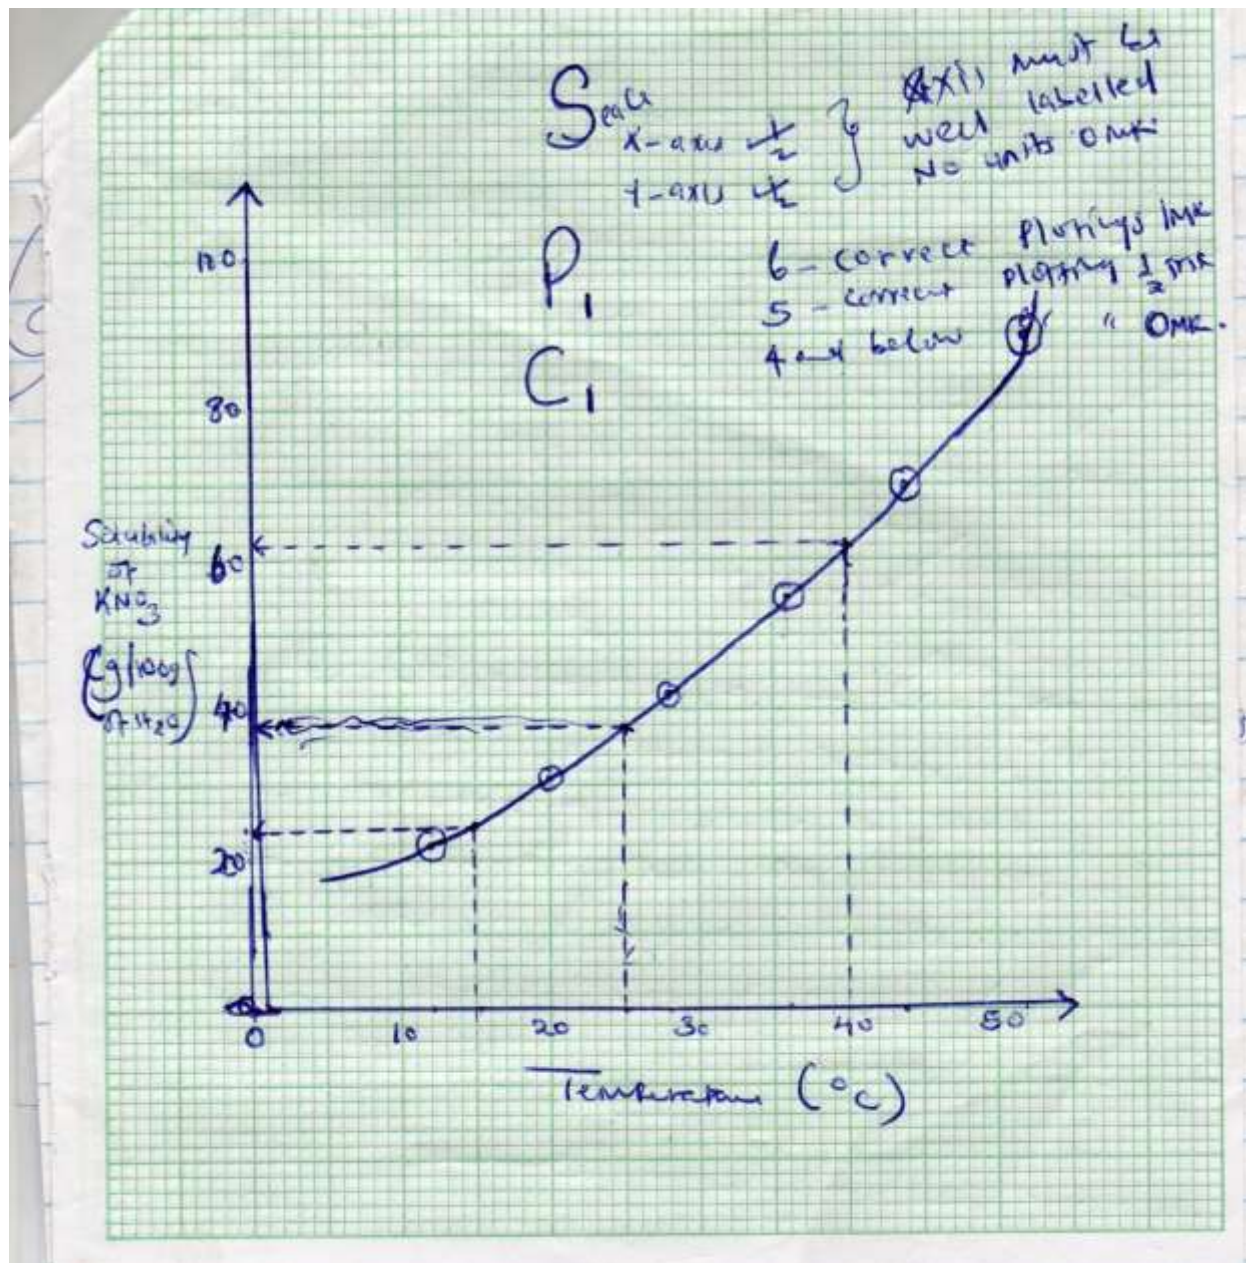 Scale
x-axis ½
y-axis ½
Axis must be
well labelled
No units 0mk
P1
6 - correct plottings 1mk
5 - correct plotting ½ mk
4 and below " " 0mk.
C1
120
80
Solubility
of
KNO3
(g/100g
of H2O)
60
40
20
0
0 10 20 30 40 50
Temperature (°C)